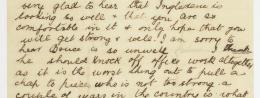 very glad to hear that Ingledene is
looking so well & that you are so
comfortable in it & only hope that you
will get strong & well. I am sorry to
hear Bruce is so unwell I think
he should knock off office work altogether
as it is the worst thing out to pull a
chap to pieces who is not too strong a
couple of years in the country is what